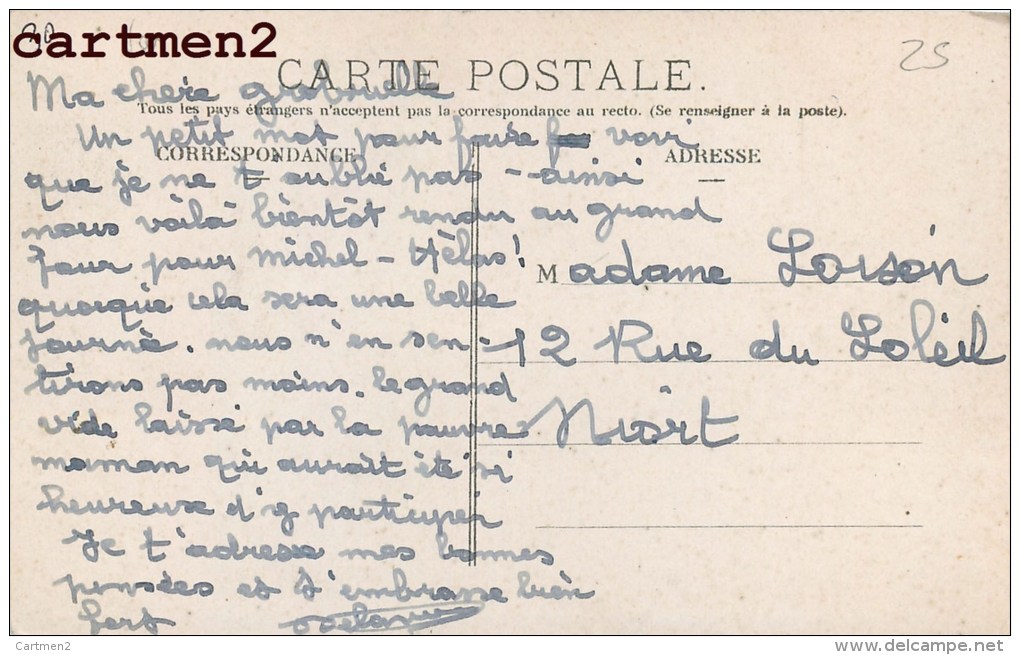 cartmen2
25
CARTE POSTALE.
Tous les pays étrangers n'acceptent pas la correspondance au recto. (Se renseigner à la poste).
CORRESPONDANCE
ADRESSE
Ma chère
Un petit mot pour faire voir
que je ne t oublié pas - ainsi
nous voilà bientôt rendu au grand
Jour pour michel - Hèlas!
quoique cela sera une belle
journè. nous n'en sen-
tirons pas moins. le grand
vide laissé par la pauvre
maman qui aurait été si
heureuse d'y participer
Je t'adresse mes bonnes
pensées et t'embrasse bièn
fort
Madame Loison
12 Rue du Soléil
Niort
Cartmen2
www.delcampe.net